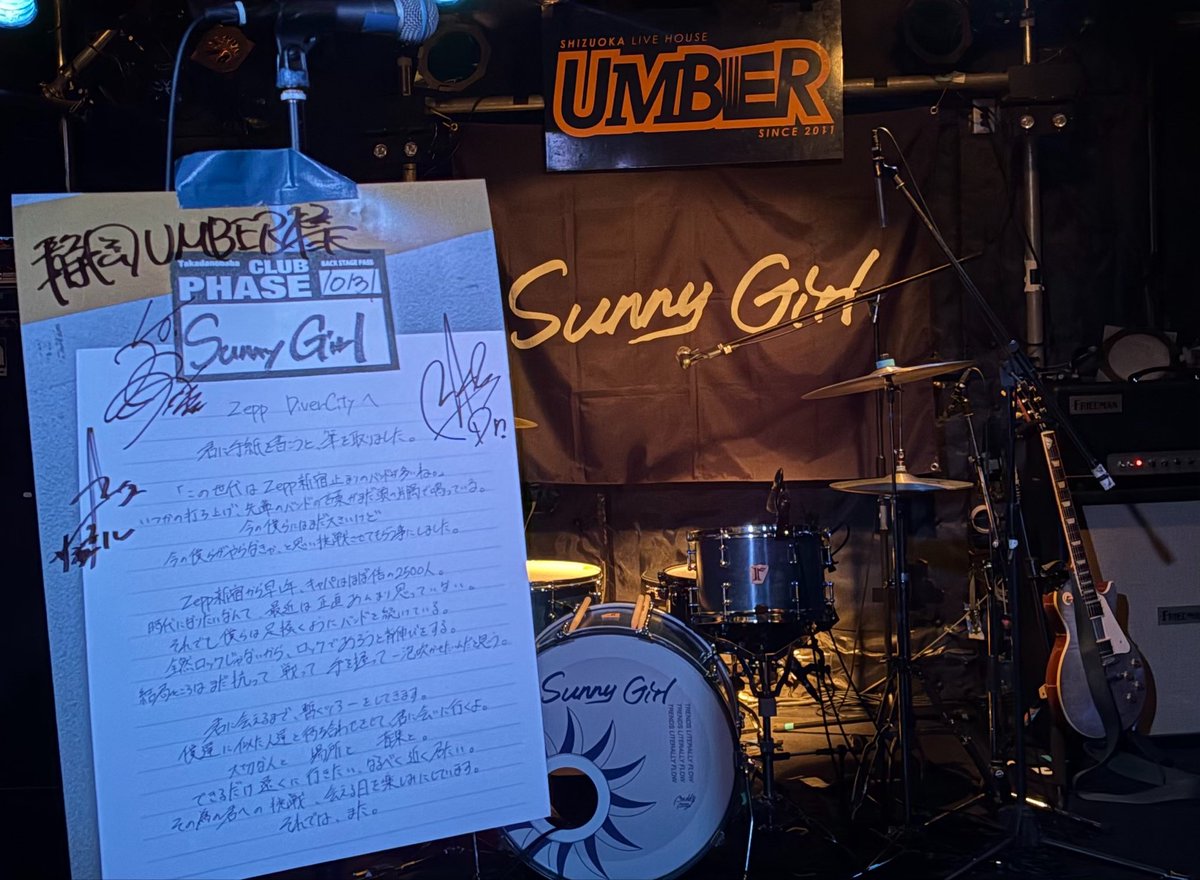 SHIZUOKA LIVE HOUSE
UMBER
SINCE 2011
Sunny Girl
静岡UMBER様
Takadanobaba CLUB BACK STAGE PASS
PHASE 10/31
Sunny Girl
Zepp DiverCityへ
君に手紙を書こうと、筆を取りました。
「この世代はZepp新宿止まりのバンドが多いね。」
いつかの打ち上げ、先輩のバンドの言葉がまだ奥の方で鳴っている。
今の僕らにはまだ大きいけど
今の僕らがやらなきゃ、と思い挑戦させてもらう事にしました。
Zepp新宿から早1年、キャパはほぼ倍の2500人。
時代になりたいなんて 最近は正直あんまり思っていない。
それでも僕らは足掻くようにバンドを続けている。
全然ロックじゃないから、ロックであろうと背伸びをする。
結局ところはまだ抗って 戦って 手を握って一泡吹かせたいんだと思う。
君に会えるまで、暫くツアーをしてきます。
僕達に似た人達と待ち合わせをして、君に会いに行くよ。
大切な人と 場所と 音楽と。
できるだけ遠くに行きたい、なるべく近く居たい。
その為の君への挑戦、会える日を楽しみにしています。
それでは、また。
Sunny Girl
TRENDS LITERALLY FLOW
TRENDS LITERALLY FLOW
TRENDS LITERALLY FLOW
FRIEDMAN
FRIEDMAN